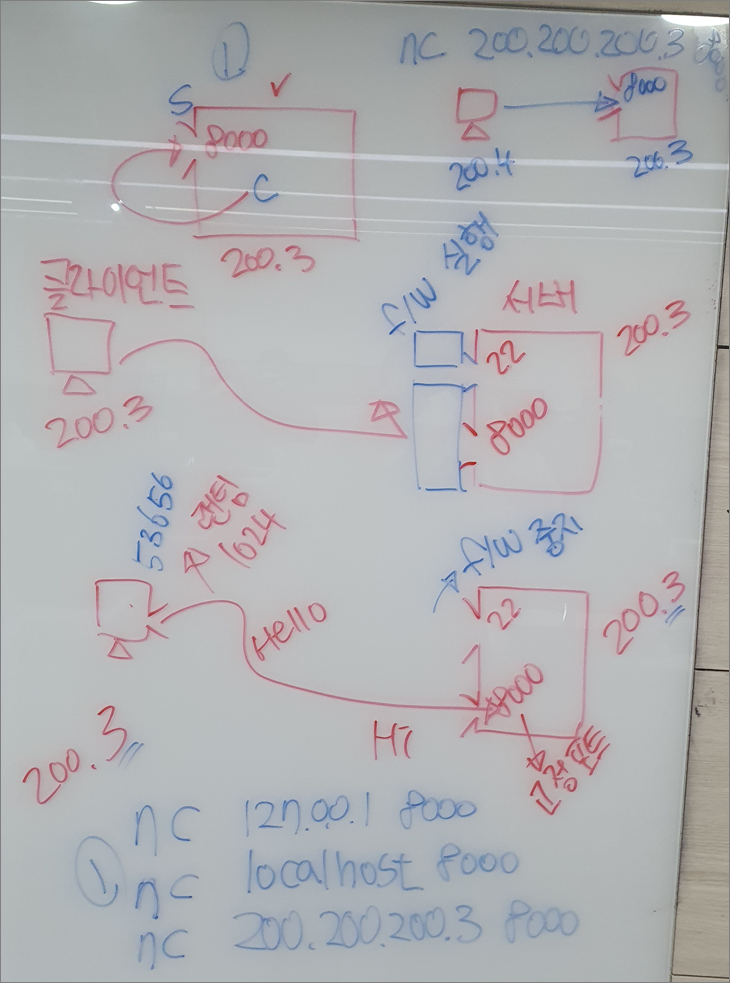 ①
nc 200.200.200.3 8000
S
8000
C
200.3
8000
200.4
200.3
클라이언트
200.3
f/w 실행
서버
22
8000
200.3
53656
랜덤
1024
Hello
Hi
200.3
f/w 중지
22
8000
고정포트
200.3
① nc 127.0.0.1 8000
nc localhost 8000
nc 200.200.200.3 8000